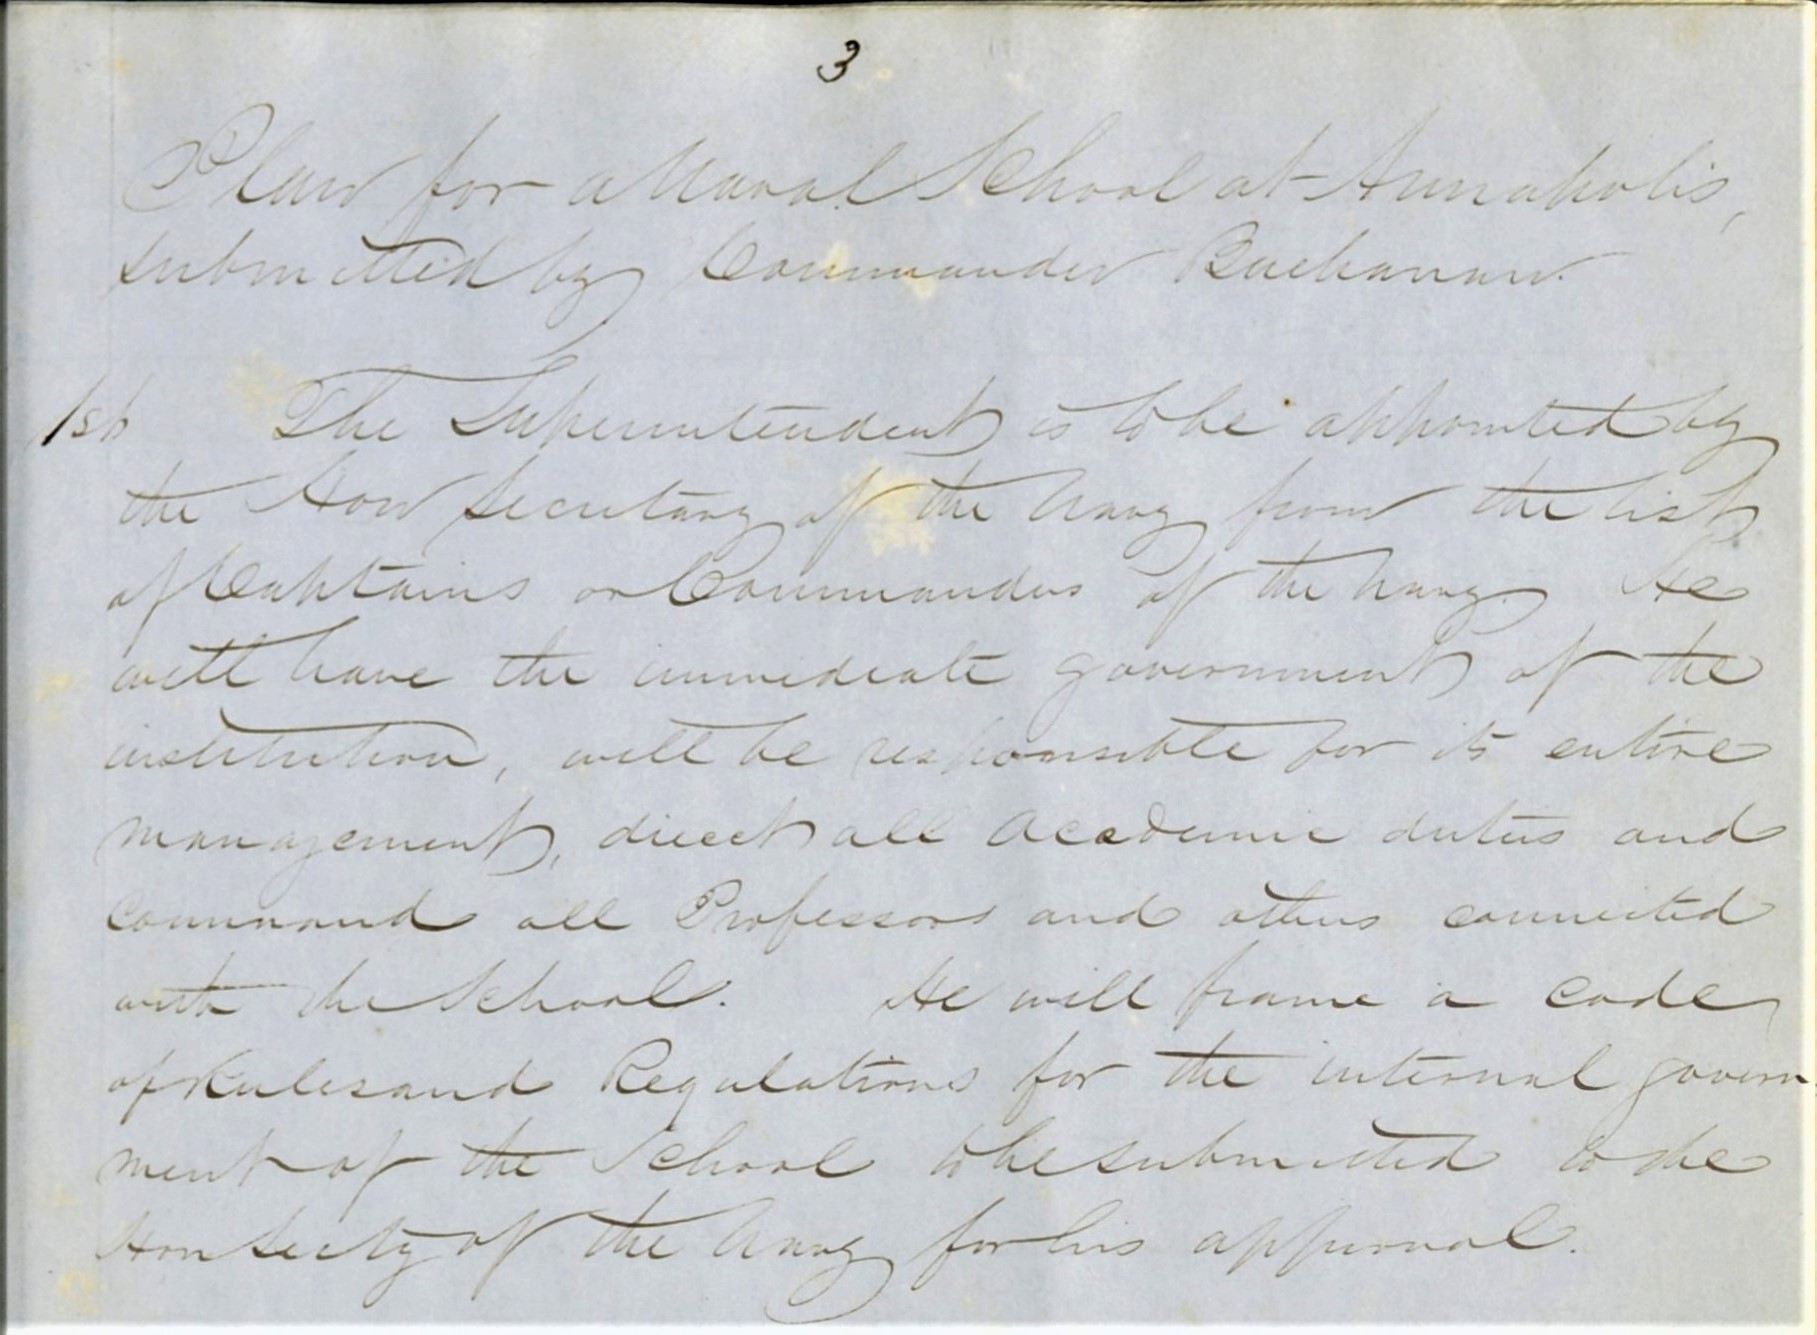 3
Plan for a Naval School at Annapolis,
submitted by Commander Buchanan.
1st The Superintendent is to be appointed by
the Hon Secretary of the Navy from the list
of Captains or Commanders of the Navy. He
will have the immediate government of the
institution, will be responsible for its entire
management, direct all Academic duties and
command all Professors and others connected
with the School. He will frame a code
of Rules and Regulations for the internal govern
ment of the School to be submitted to the
Hon Secty of the Navy for his approval.